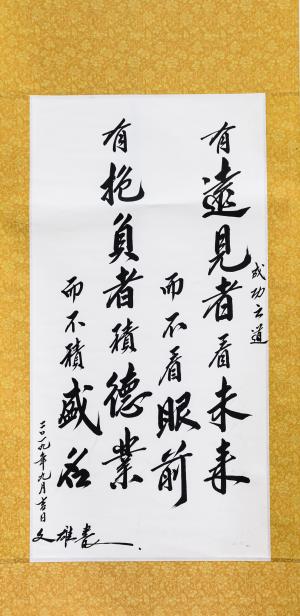 成功之道
有遠見者看未来
而不看眼前
有抱負者積德業
而不積盛名
二〇一九年九月吉日
文雄書